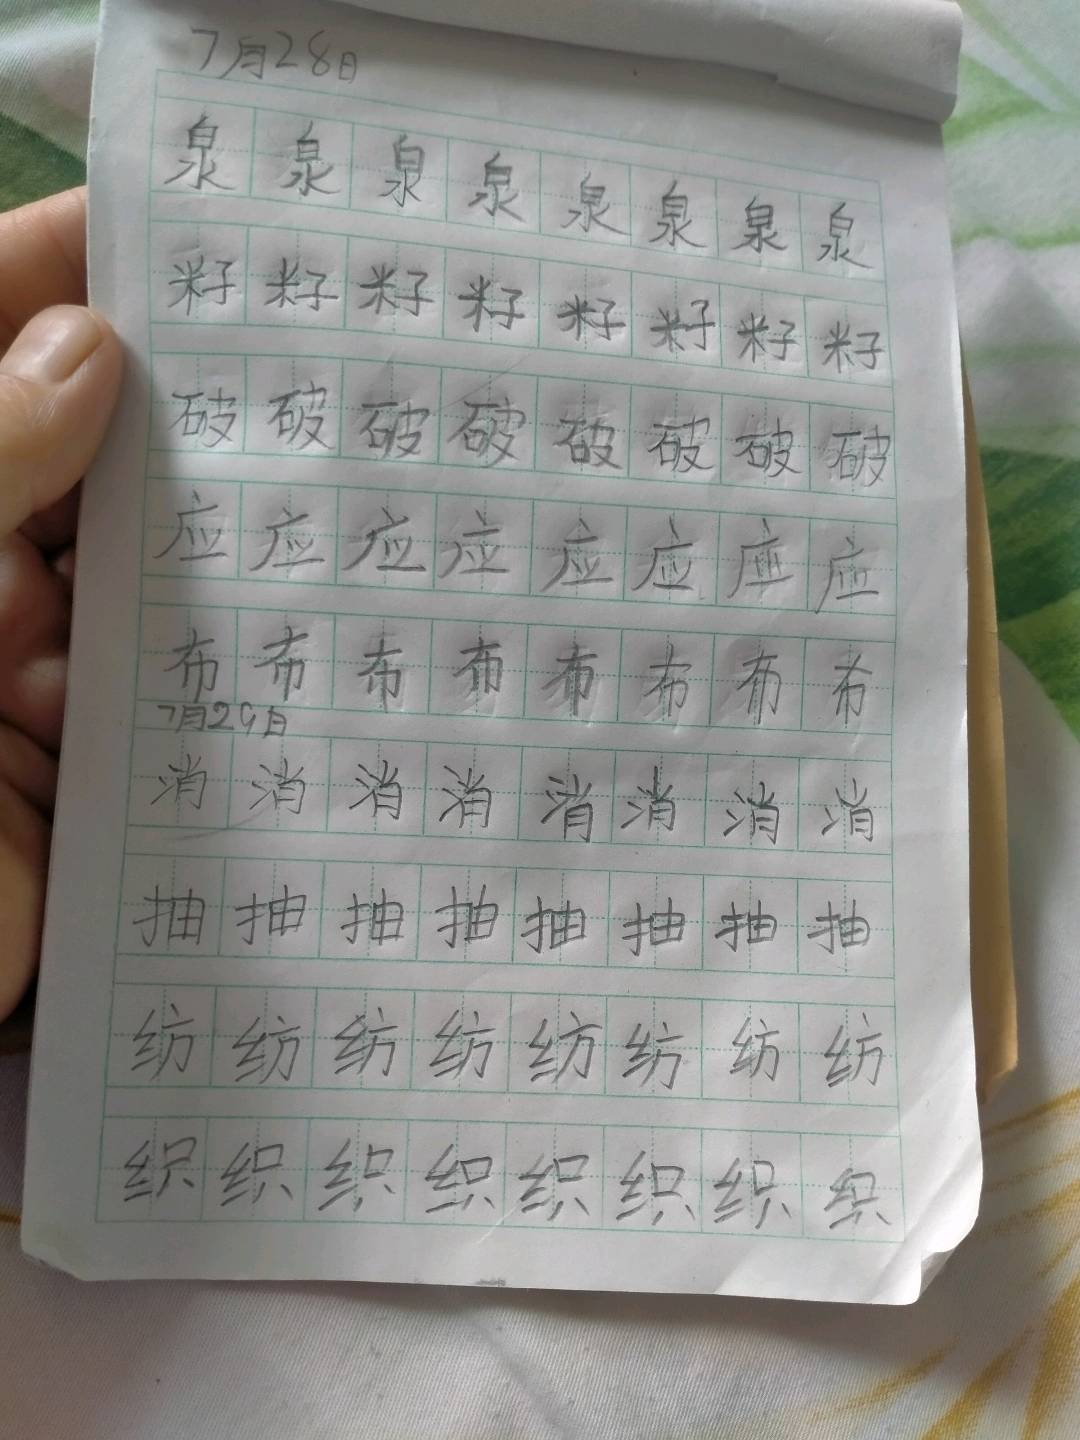 7月28日
泉泉泉泉泉泉泉泉
籽籽籽籽籽籽籽籽
破破破破破破破破
应应应应应应应应
布布布布布布布布
7月29日
消消消消消消消消
抽抽抽抽抽抽抽抽
纺纺纺纺纺纺纺纺
织织织织织织织织